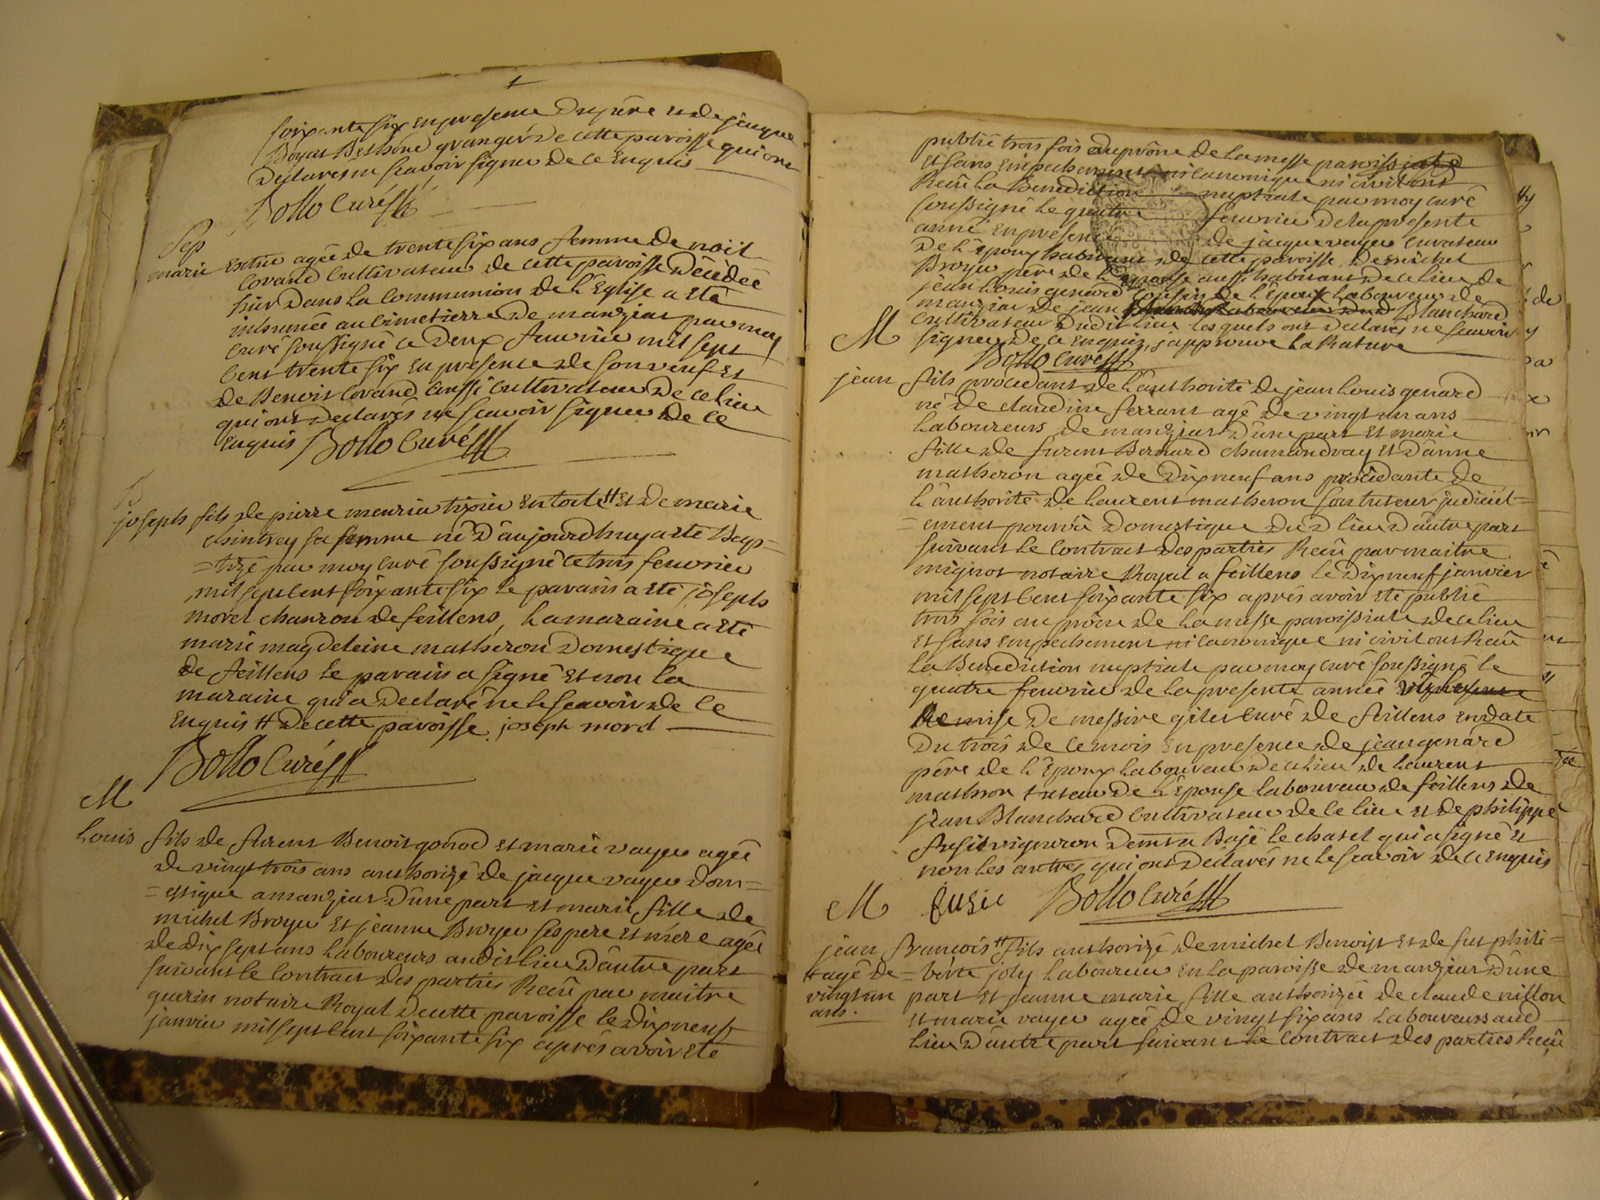 soixante six en presence du père et de jacque
Boyat Besthone granger de cette paroisse qui ont
declarés ne scavoir signer de ce enquis
Bollo Curé
Sep
marie âgée de trente six ans femme de noîit
Lovand Cultivateur de cette paroisse décedée
hier dans la Communion de l'Eglise a eté
inhumée au Cimetierre de manziat par moy
Curé soussigné ce deux feuvrier mil sept
cent trente six en presence de son veuf et
de Benoit Lovand aussi Cultivateur de ce lieu
qui ont declarés ne scavoir signer de ce
enquis Bollo Curé
joseph fils de pierre meunier tixier en toile # et de marie
sa femme né d'aujourd'huy a eté Bap=
=tizé par moy curé soussigné ce trois feuvrier
mil sept cent soixante six le parain a eté joseph
morel chanron de feillens, la maraine a eté
marie magdeleine matheron domestique
de feillens le parain a signé et non la
maraine qui a declaré ne le scavoir de ce
enquis # de cette paroisse joseph morel
Bollo Curé
M
Louis fils de furent Benoit gonod et marie voyer agé
de vingt trois ans authorizé de jacque voyer dom=
=estique a manziat d'une part et marie fille de
michel Broyer et jeanne Broyer ses pere et mére agée
de dix sept ans laboureurs audit lieu d'autre part
suivant le Contract des parties Recû par maitre
guerin notaire Royal de cette paroisse le dix neuf
janvier mil sept cent soixante six apres avoir eté
publié trois fois au prône de la messe paroissiale
et sans empechement ni canonique ni civil ont
Recû la Benediction nuptiale par moy curé
soussigné le quatre feuvrier de la presente
anné en presence de jacque voyer curateur
de l'Epoux habitant de cette paroisse de michel
Broyer père de l'epouse aussi habitant de ce lieu de
jean Louis genard cousin de l'epoux laboureur de
manziat de jean Blanchard
Cultivateur dudit lieu lesquels ont declarés ne scavoir
M signer de ce enquis, j'approuve la Rature
Bollo Curé
jean fils procedant de l'authorité de jean Louis genard
né de claudine ferrant agé de vingt un ans
laboureurs de manziat d'une part et marie
fille de furent Bernard chamandray et d'anne
matheron agée de dix neuf ans procedante de
l'authorité de laurent matheron son tuteur judiciel=
=ement pourvû domestique dud lieu d'autre part
suivant le Contract des parties Recû par maitre
mignot notaire Royal a feillens le dix neuf janvier
mil sept cent soixante six après avoir eté publié
trois fois au prône de la messe paroissiale de ce lieu
et sans empechement ni canonique ni civil ont Recû
la Benediction nuptiale par moy curé soussigné le
quatre feuvrier de la presente année
Remise de messire giles curé de feillens en date
du trois de ce mois en presence de jean genard
père de l'Epoux laboureur de ce lieu de laurent
matheron tuteur de l'Epouse laboureur de feillens de
jean Blanchard Cultivateur de ce lieu et de philippe
fusié vigneron demt a Bajé le chatel qui a signé et
non les autres qui ont declarés ne le scavoir de ce enquis
M fusie Bollo Curé
jean François # fils authorizé de michel Benoist et de fut phili=
# agé de =berte joly laboureur en la paroisse de manziat d'une
vingt un part et jeanne marie fille authorizée de claude nillon
ans. et marie voyer agée de vingt six ans laboureurs aud
lieu d'autre part suivant le Contract des parties Recû